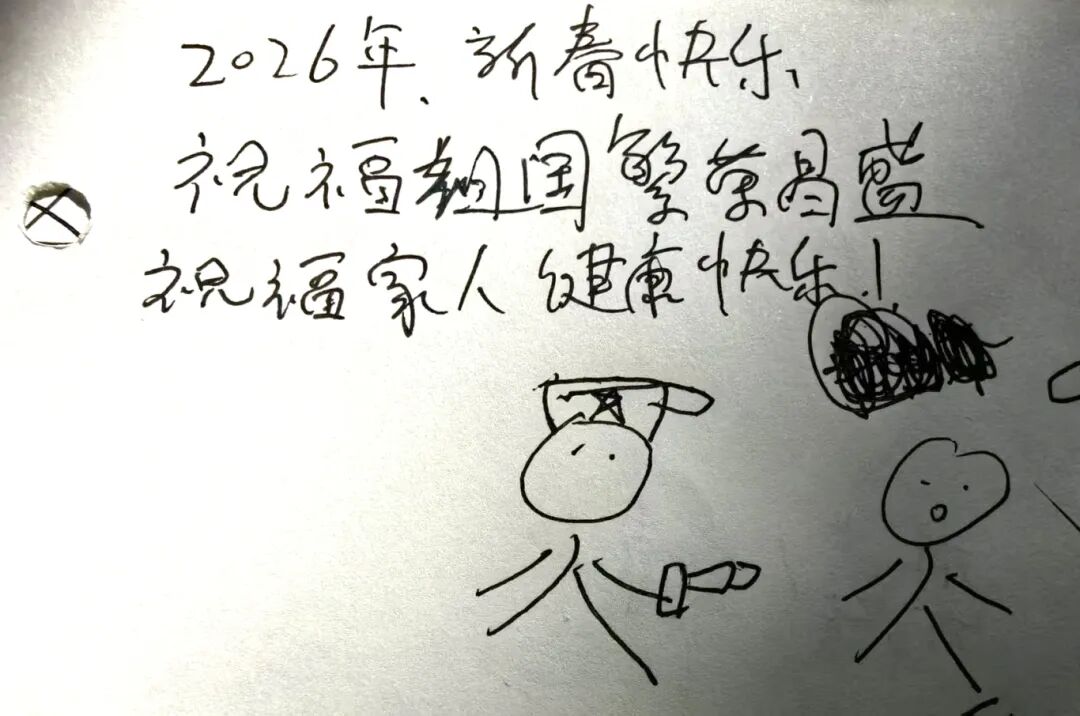 2026年、新春快乐、
祝福祖国繁荣昌盛
祝福家人健康快乐！